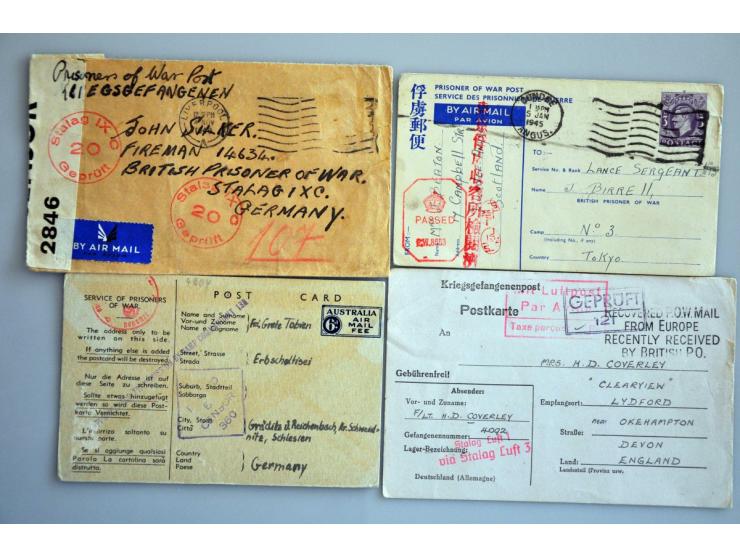 Prisoners of War Post
KRIEGSGEFANGENEN
LIVERPOOL
JOHN SUMER.
FIREMAN 14634.
BRITISH PRISONER OF WAR.
STALAG IXC.
GERMANY.
Stalag IX C
20
Geprüft
Stalag IX C
20
Geprüft
2846
BY AIR MAIL
107
PRISONER OF WAR POST
SERVICE DES PRISONNIERS DE GUERRE
BY AIR MAIL
PAR AVION
俘虜郵便
DUNDEE
5 JAN
1945
ANGUS.
POSTAGE
TO:-
Service No. & Rank LANCE SERGEANT
Name J. BIRRELL
BRITISH PRISONER OF WAR
Camp Nº 3
(Including No., if any)
Country TOKYO
FROM:-
Campbell St
Scotland
PASSED
SERVICE OF PRISONERS
OF WAR.
The address only to be
written on this side.
If anything else is added
the postcard will be destroyed.
Nur die Adresse ist auf
diese Seite zu schreiben.
Sollte etwas hinzugefügt
werden so wird diese Post-
karte Vernichtet.
L'indirizzo soltanto su
questo lato.
Se si aggiunge qualsiasi
Parola La cartolina sara
distrutta.
POST CARD
Name and Surname
Vor-und Zuname
Nome e Cognome
Grete Tobien
AUSTRALIA
AIR
MAIL
FEE
Street, Strasse
Strada
Erbscholtisei
Suburb, Stadtteil
Sobborgo
CENSOR
360
City, Stadt
Citta
Gräditz ü Reichenbach, Kr. Schweid-
nitz, Schlesien
Country
Land
Paese
Germany
Kriegsgefangenenpost
Postkarte
Mit Luftpost
Par Avion
GEPRÜFT
121
RECOVERED P.O.W. MAIL
FROM EUROPE
RECENTLY RECEIVED
BY BRITISH P.O.
An
MRS. H.D. COVERLEY
Gebührenfrei!
"CLEARVIEW"
Absender:
Vor- und Zuname:
F/LT. H.D. COVERLEY
Gefangenennummer: 4092
Lager-Bezeichnung:
Stalag Luft 1
via Stalag Luft 3
Deutschland (Allemagne)
Empfangsort: LYDFORD
near OKEHAMPTON
Straße: DEVON
Land: ENGLAND
Landesteil (Provinz usw.